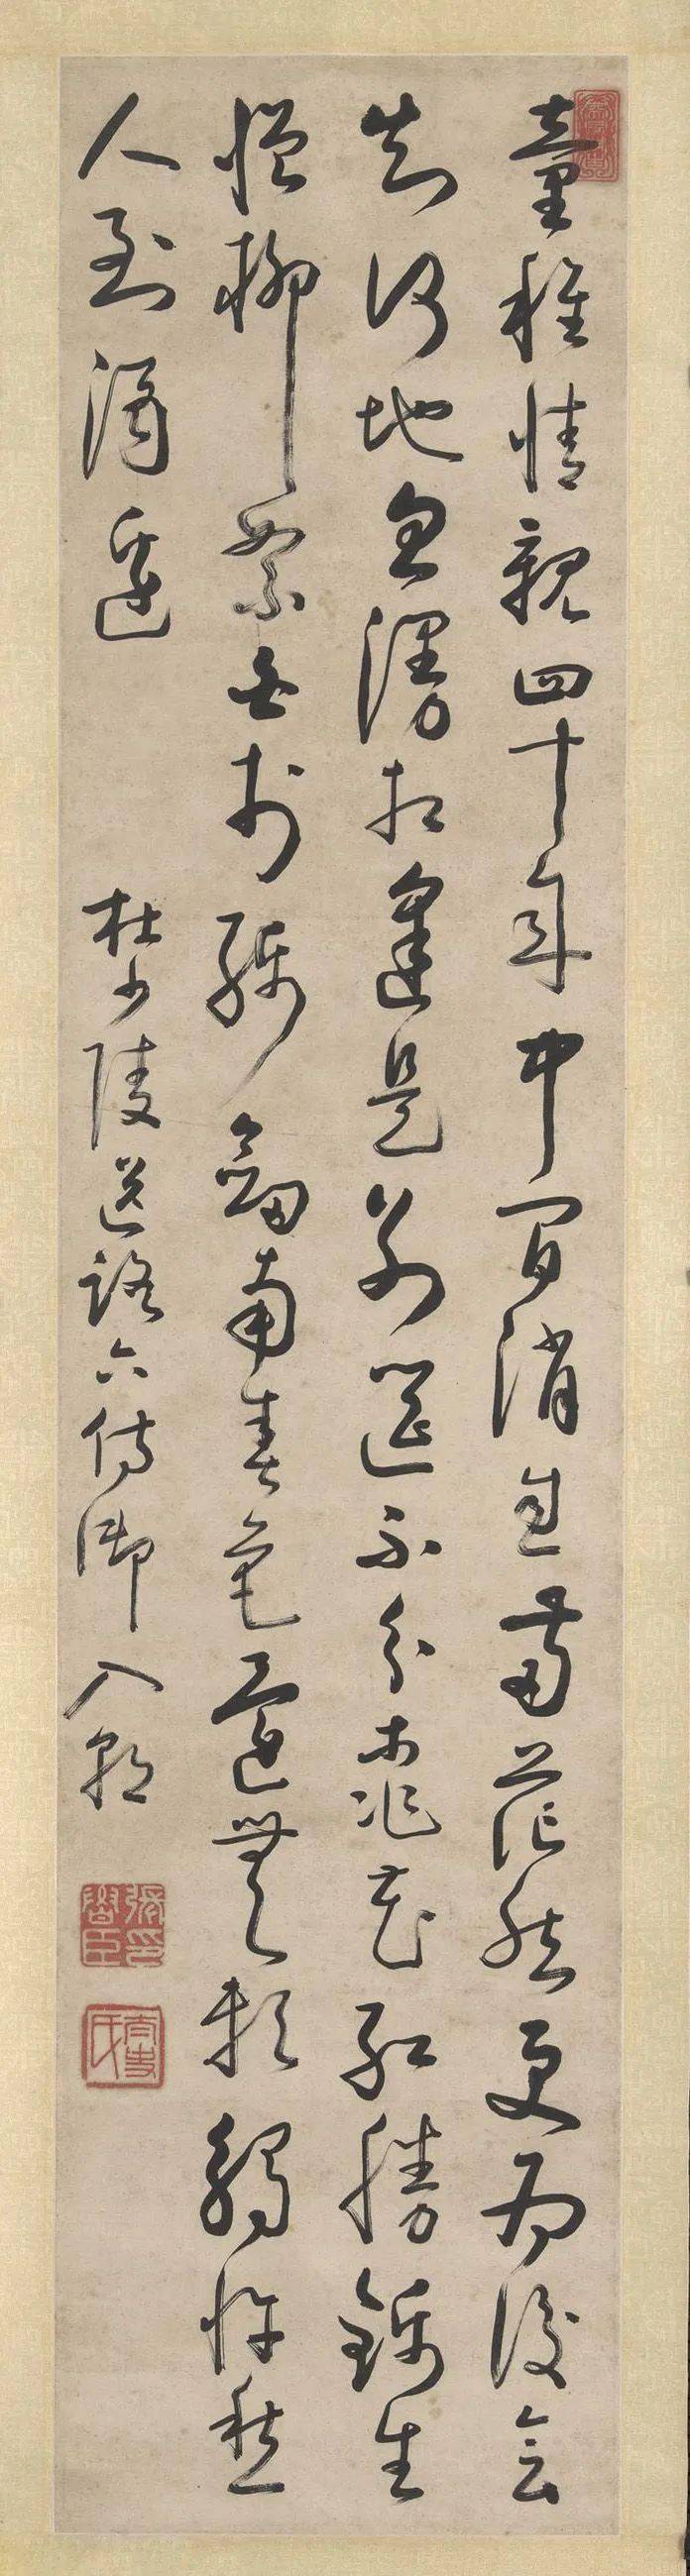 童稚情親四十年中間消息兩茫然更為後會
知何地忽漫相逢是別筵不分桃花紅勝錦生
憎柳絮白於綿劍南春色還無賴觸忤愁
人到酒邊
杜少陵送路六侍御入朝
太史氏